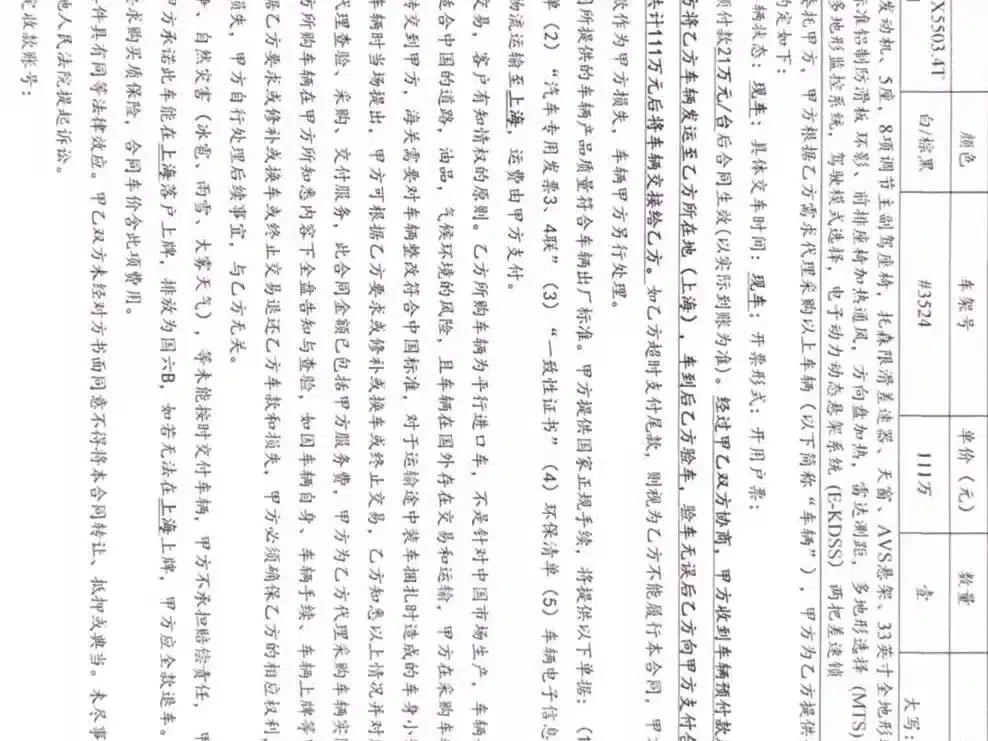 颜色 车架号 单价（元） 数量
X5503.4T 白/棕黑 #3524 111万 壹 大写：
发动机、5座，8项调节主副驾座椅，托森限滑差速器、天窗、AVS悬架、33英寸全地形
标准铝制防滑板 环影、前排座椅加热通风，方向盘加热，雷达测距，多地形选择（MTS）
多地形监控系统，驾驶模式选择，电子动力动态悬架系统（E-KDSS）两把差速锁
委托甲方，甲方根据乙方需求代理采购以上车辆（以下简称“车辆”），甲方为乙方提供
约定如下：
车辆状态：现车；具体交车时间：现车；开票形式：开用户票；
预付款21万元/台后合同生效（以实际到账为准）。经过甲乙双方协商，甲方收到车辆预付款
方将乙方车辆发运至乙方所在地（上海），车到后乙方验车，验车无误后乙方向甲方支付
共计111万元后将车辆交接给乙方。如乙方超时支付尾款，则视为乙方不能履行本合同，甲
款作为甲方损失，车辆甲方另行处理。
所提供的车辆产品质量符合车辆出厂标准。甲方提供国家正规手续，将提供以下单据：（1
单（2）“汽车专用发票3、4联”（3）“一致性证书”（4）环保清单（5）车辆电子信息
物流运输至上海，运费由甲方支付。
交易，客户有知情权的原则。乙方所购车辆为平行进口车，不是针对中国市场生产，车辆
适合中国的道路，油品，气候环境的风险，且车辆在国外存在交易和运输，甲方在采购车
转交到甲方，海关需要对车辆整改符合中国标准，对于运输途中装车捆扎时造成的车身小
车辆时当场提出，甲方可根据乙方要求或修补或换车或终止交易，乙方知悉以上情况并对
代理查验、采购、交付服务，此合同金额已包括甲方服务费，甲方为乙方代理采购车辆实
方所购车辆在甲方所知悉内容下全盘告知与查验，如因车辆自身、车辆手续、车辆上牌等
据乙方要求或修补或换车或终止交易退还乙方车款和损失，甲方必须确保乙方的相应权利
争、自然灾害（冰雹、雨雪、大雾天气），等未能按时交付车辆，甲方不承担赔偿责任，甲
损失，甲方自行处理后续事宜，与乙方无关。
甲方承诺若此车能在上海落户上牌，排放为国六B，如若无法在上海上牌，甲方应全款退车。
要求购买质保险，合同车价含此项费用。
件具有同等法律效应。甲乙双方未经对方书面同意不得将本合同转让、抵押或典当。未尽事
地人民法院提起诉讼。
定收款账号：